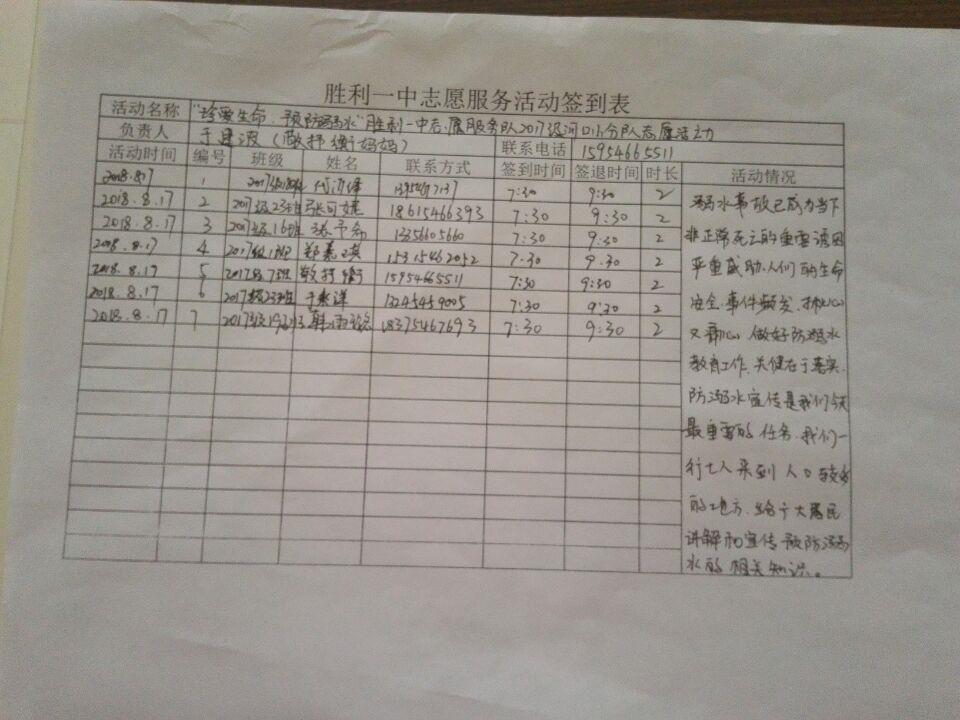 胜利一中志愿服务活动签到表
活动名称 "珍爱生命,预防溺水"胜利一中志愿服务队2017级河口小分队志愿活动
负责人 于建波(敬抒衡妈妈) 联系电话 15954665511
活动时间 编号 班级 姓名 联系方式 签到时间 签退时间 时长 活动情况
2018.8.17 1 7:30 9:30 2
2018.8.17 2 2017级23班 张可婕 18615466393 7:30 9:30 2
2018.8.17 3 2017级16班 张予 13356605660 7:30 9:30 2
2018.8.17 4 2017级1班 郑嘉琪 15315462052 7:30 9:30 2
2018.8.17 5 2017级7班 敬抒衡 15954665511 7:30 9:30 2
2018.8.17 6 2017级23班 于 13245459005 7:30 9:30 2
2018.8.17 7 2017级19班 韩雨 18375467693 7:30 9:30 2
溺水事故已成为当下
非正常死亡的重要诱因
严重威胁人们的生命
安全.事件频发,揪心
又痛心.做好防溺水
教育工作,关健在于落实.
防溺水宣传是我们今天
最重要的任务.我们一
行七人来到人口较多
的地方,给广大居民
讲解和宣传预防溺
水的相关知识。